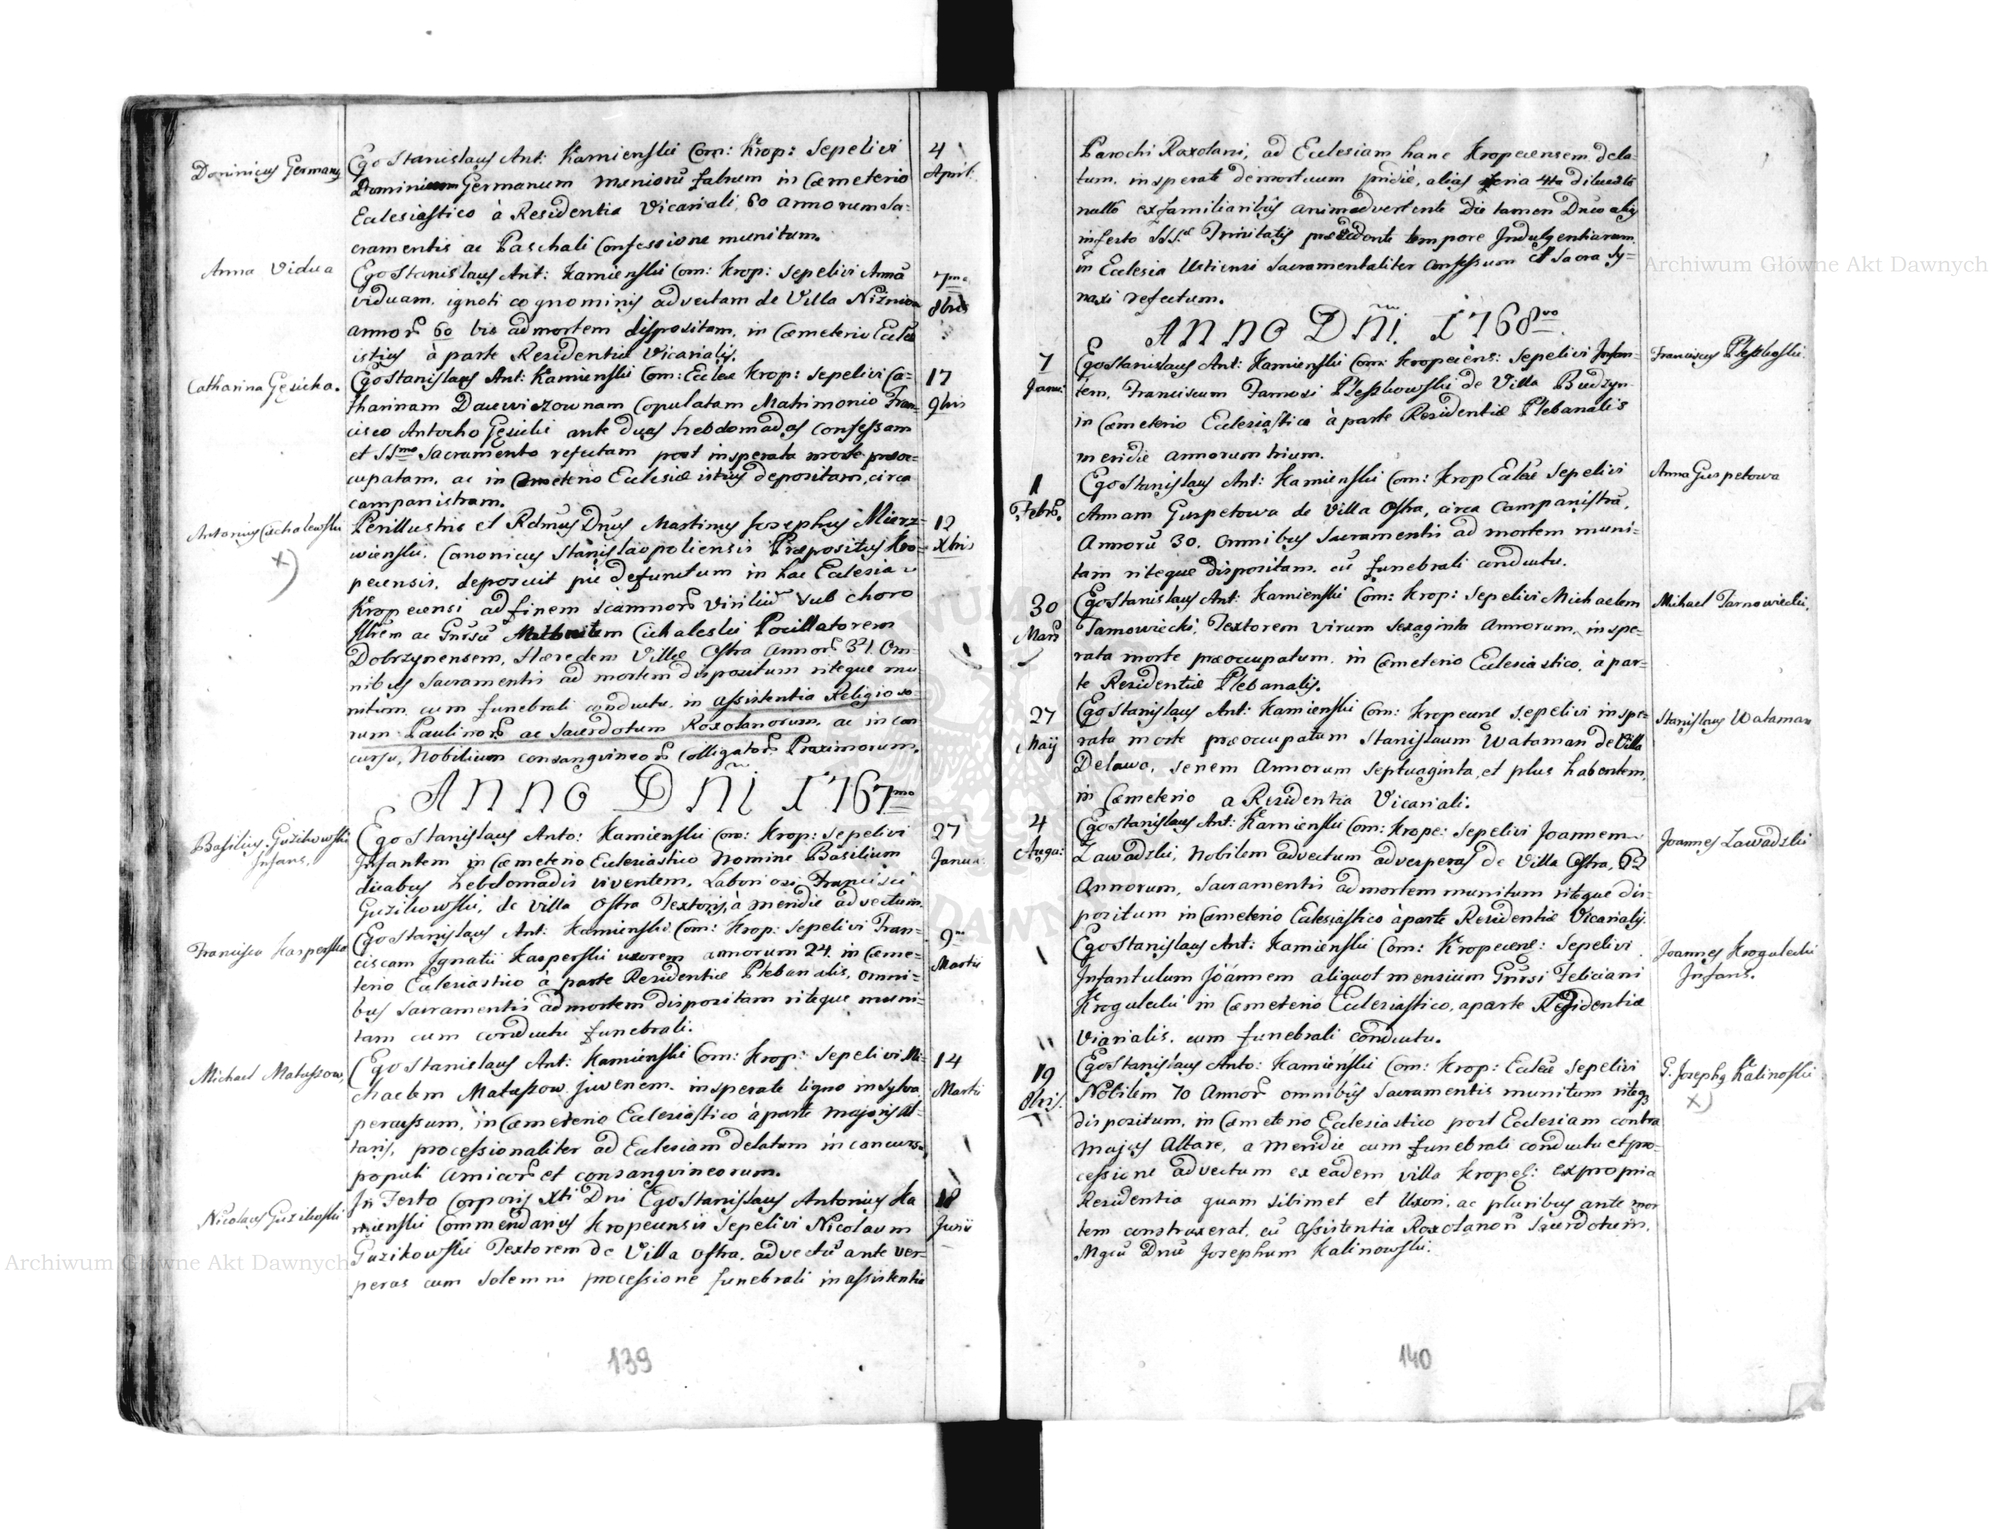 Dominicus Germanus
Ego Stanislaus Ant: Kamienski Com: Krop: Sepelivi
Dominicum Germanum fabrum in Cæmeterio
Ecclesiastico à Residentia Vicariali, 60 annorum Sa-
cramentis ac Paschali Confessione munitum.
4
April:
Anna Vidua
Ego Stanislaus Ant: Kamienski Com: Krop: Sepelivi Annã
viduam ignoti cognominis advectam de Villa Niżniow
annor̃ 60 bis ad mortem dispositam, in Cæmeterio Ecclæ
istius à parte Residentiæ Vicarialis.
7ma
8bris
Catharina Gęsicka.
Ego Stanislaus Ant: Kamienski Com: Eclæ Krop: Sepelivi Ca-
tharinam Copulatam Matrimonio Fran-
cisco Antocho Gęsicki ante duas hebdomadas confessam
et SSmo Sacramento refectam post insperata morte præoc-
cupatam, ac in Cæmeterio Ecclesiæ istius depositam, circa
campanistram.
17
9bris
Antonius Cichalewski
x)
Perillustris et Rdmus Dnus Martinus Josephus Mierz-
wienski, Canonicus Stanislaopoliensis Præpositus Kro-
peciensis, deposuit piè defunctum in hac Ecclesia
Kropeciensi ad finem scamnor̃ viriliũ sub choro
ac Gnrsũ Cichaleski Pocillatorem
Dobrzynensem, Hæredem Villæ Ostra annor̃ 34. Om-
nibus Sacramentis ad mortem dispositum riteque mu-
nitum cum funebrali conductu, in assistentia Religioso-
rum Paulinor̃ ac Sacerdotum Roxolanorum, ac in con-
cursu, Nobilium consangvineor̃ Colligator̃ Proximorum.
12
Xbris
ANNO DÑI 1767mo
Basilius Guzikowski
Infans.
Ego Stanislaus Anto: Kamienski Com: Krop: Sepelivi
Infantem in Cæmeterio Ecclesiastico Nomine Basilium
duabus hebdomadis viventem, Laboriosi Francisci
Guzikowski, de Villa Ostra Textoris, à meridie advectum.
27
Janua:
Francisca Kasperska
Ego Stanislaus Ant: Kamienski Com: Krop: Sepelivi Fran-
ciscam Ignatii Kasperski uxorem annorum 24. in Cæme-
terio Ecclesiastico à parte Residentiæ Plebanalis, omni-
bus Sacramentis ad mortem dispositam riteque muni-
tam cum conductu funebrali.
9na
Martii
Michael Matussow,
Ego Stanislaus Ant: Kamienski Com: Krop: Sepelivi Mi-
chaelem Matussow, Juvenem insperate ligno in sylva
percussum, in Cæmeterio Ecclesiastico à parte majoris Al-
taris, processionaliter ad Ecclesiam delatum in concursu
populi amicor̃ et consangvineorum.
14
Martii
Nicolaus Guzikoski
In Festo Corporis Xti Dni Ego Stanislaus Antonius Ka-
mienski Commendarius Kropecensis Sepelivi Nicolaum
Guzikowski Textorem de Villa Ostra, advectũ ante ves-
peras cum solemni processione funebrali in assistentia
18
Junii
139
Parochi Roxolani, ad Ecclesiam hanc Kropecensem dela-
tum, insperate demortuum pridie, alias feria 4ta diluculo
nullo ex familiaribus animadvertente die tamen Dnico
in festo SSSæ Trinitatis præcedente tempore Indulgentiarum
in Ecclesia Ustiensi Sacramentaliter confessum et Sacra Sy-
naxi refectum.
ANNO DÑI. 1768vo
7
Janu:
Ego Stanislaus Ant: Kamienski Com: Kropeciens: Sepelivi Infan-
tem, Franciscum Famosi Pleszkowski de Villa Budzyn
in Cæmeterio Ecclesiastico à parte Residentiæ Plebanalis
meridie annorum trium.
Franciscus Pleszkoski:
1
Febr̃:
Ego Stanislaus Ant: Kamienski Com: Krop Eclæ Sepelivi
Annam Guspetowa de Villa Ostra, circa Campanistrã,
Annorũ 30. Omnibus Sacramentis ad mortem muni-
tam riteque dispositam, cũ funebrali conductu.
Anna Guspetowa
30
Marti
Ego Stanislaus Ant: Kamienski Com: Krop: Sepelivi Michaelem
Tarnowiecki, Textorem virum sexaginta Annorum, inspe-
rata morte præoccupatum, in Cæmeterio Ecclesiastico, à par-
te Residentiæ Plebanalis.
Michael Tarnowiecki,
27
Maij
Ego Stanislaus Ant: Kamienski Com: Kropecens sepelivi inspe-
rata morte præoccupatum Stanislaum Wataman de Villa
Delawa, senem Annorum septuaginta, et plus habentem,
in Cæmeterio a Residentia Vicariali.
Stanislaus Wataman
4
Augu:
Ego Stanislaus Ant: Kamienski Com: Krope: Sepelivi Joannem
Zawadzki, Nobilem advectum ad vesperas de Villa Ostra, 62
Annorum, Sacramentis ad mortem munitum riteque dis-
positum in Cæmeterio Ecclesiastico à parte Residentiæ Vicarialis.
Joannes Zawadzki
Ego Stanislaus Ant: Kamienski Com: Kropecens: Sepelivi
Infantulum Joannem aliquot mensium Gnrsi Feliciani
Krogulecki in Cæmeterio Ecclesiastico, a parte Residentiæ
Viarialis, cum funebrali conductu.
Joannes Krogulecki
Infans.
19
8bris:
Ego Stanislaus Anto: Kamienski Com: Krop: Eclæ Sepelivi
Nobilem 70 Annor̃ omnibus Sacramentis munitum riteq
dispositum, in Cæmeterio Ecclesiastico post Ecclesiam contra
majus Altare, a meridie cum funebrali conductu et pro-
cessione advectum ex eadem villa Krope: ex propria
Residentia quam sibimet et Uxori, ac pluribus ante mor-
tem construxerat, cũ assistentia Roxolanor̃ Sacerdotum,
Mgcũ Dnũ Josephum Kalinowski.
G. Josephus Kalinoski
x)
140
Archiwum Główne Akt Dawnych
Archiwum Główne Akt Dawnych